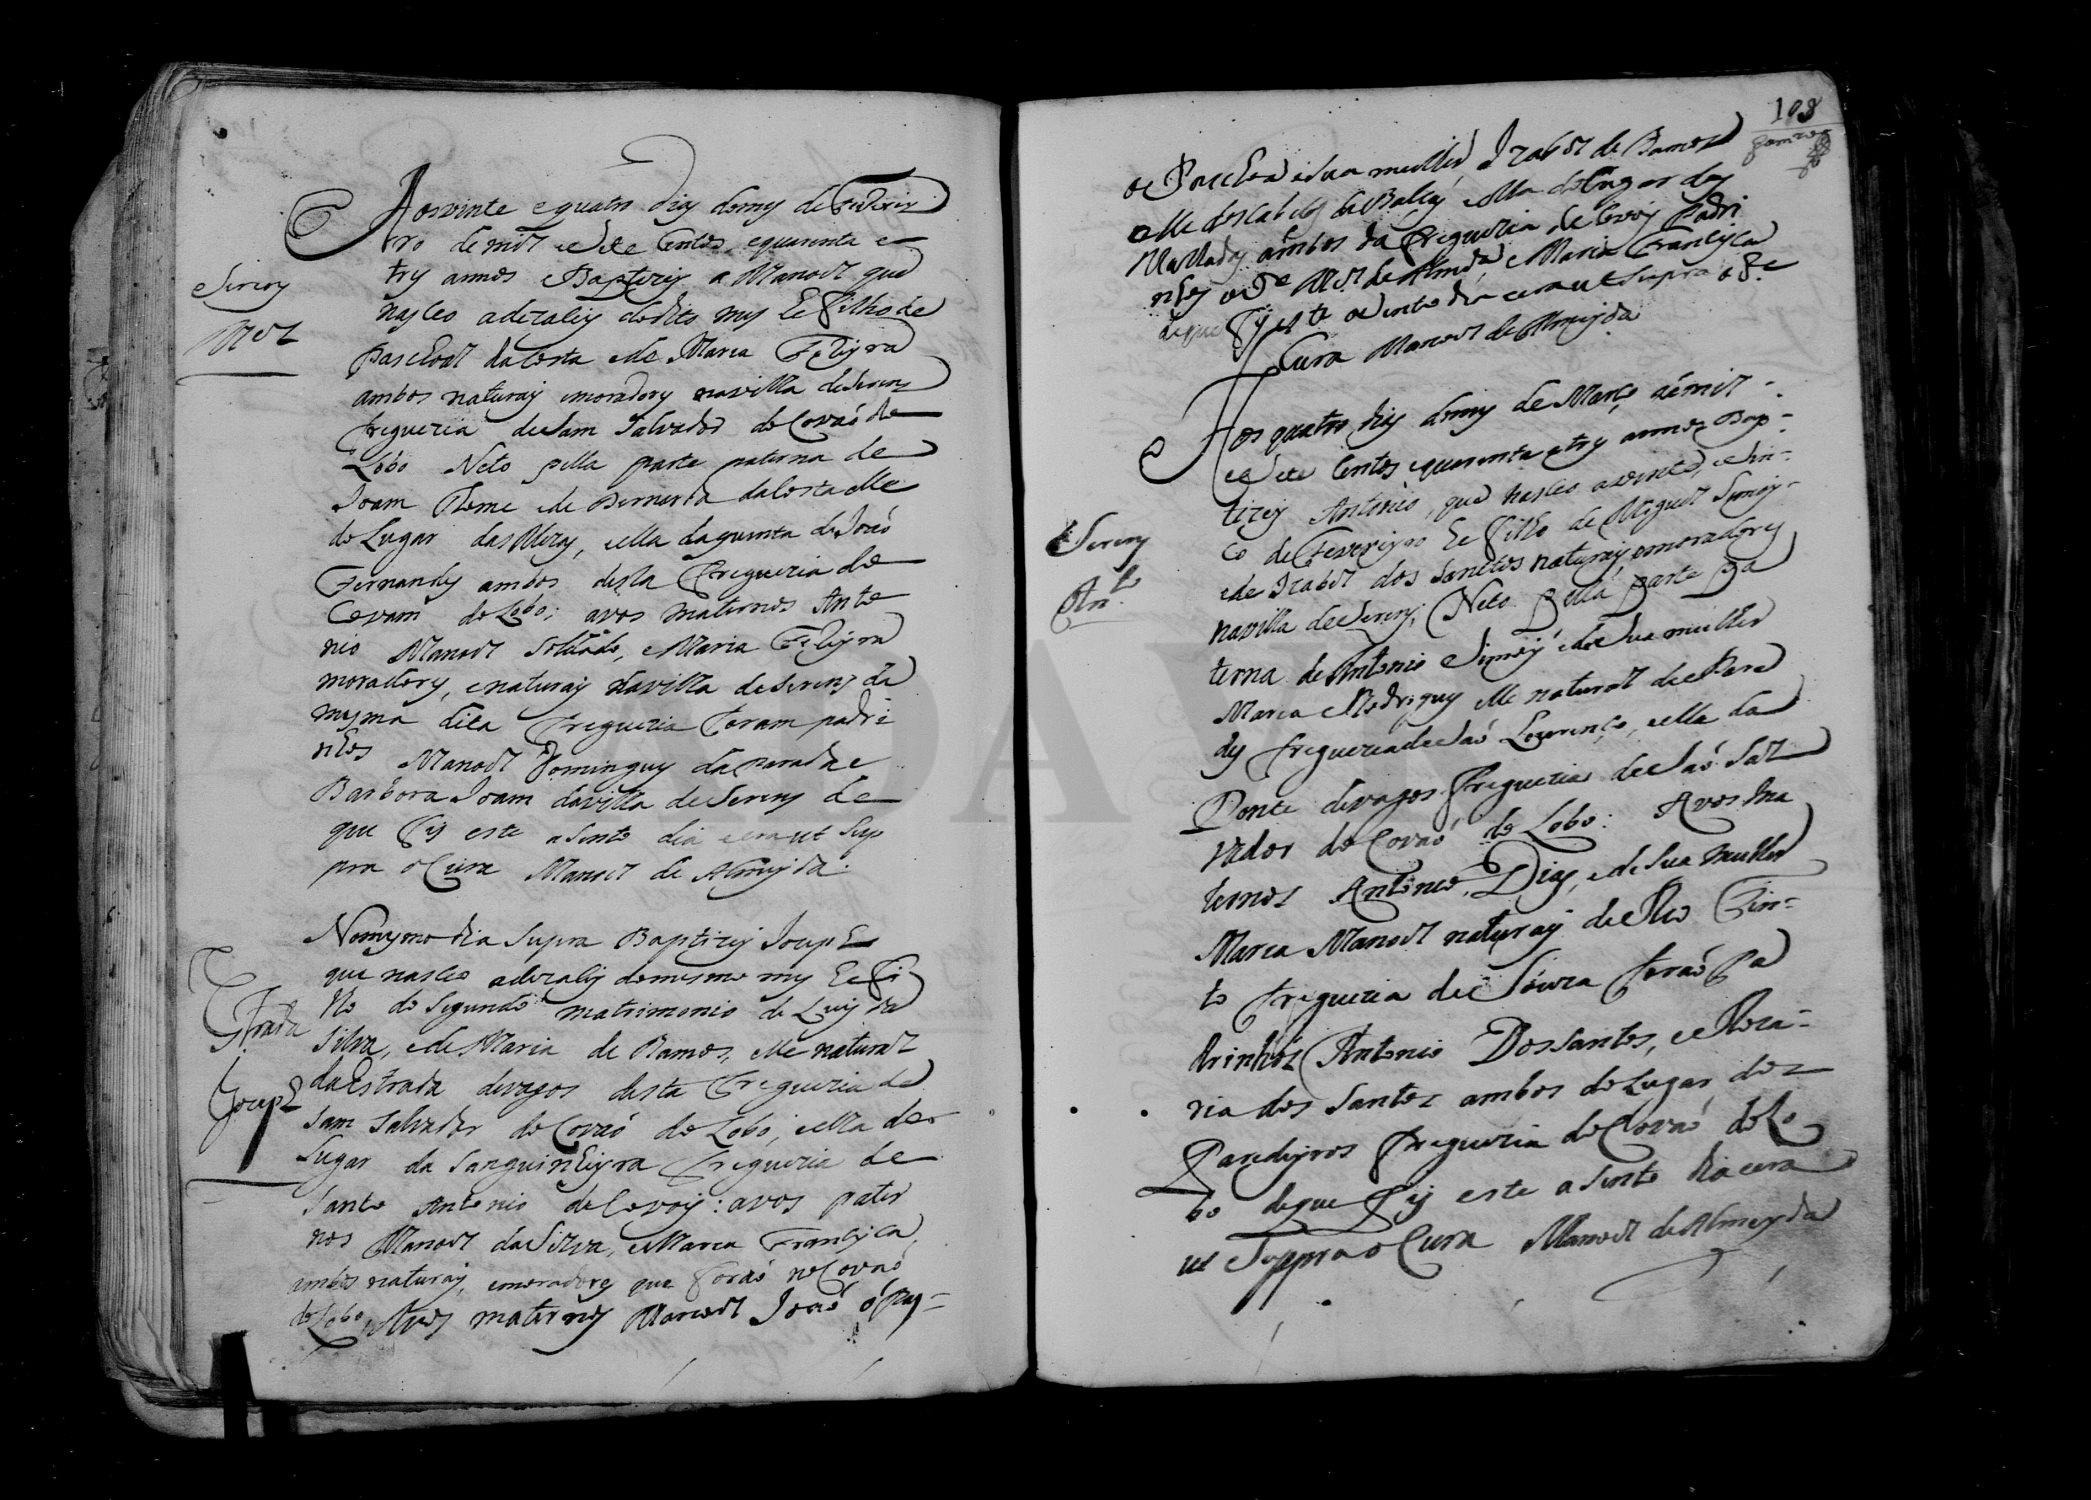 Aos vinte e quatro dias do mes de Feverey
ro de mil e Sete Centos e quarenta e
tres annos Baptizey a Manoel que
nasceo a dezaseis do dito mes he Filho de
Paschoal da Costa e de Maria
ambos naturais e moradores na villa de Serem
Freguezia de Sam Salvador de Covaó de
Lobo Neto pella parte paterna de
Joam Thome e de Bernarda da Costa elle
do Lugar das Mezas, ella da quinta de Joaó
Fernandes ambos desta Freguezia de
Covam de Lobo; avos maternos Anto
nio Manoel Soldado, e Maria
moradores, e naturais da villa de Serem da
mesma dita Freguezia Foram padri
nhos Manoel Domingues da Parada e
Barbora Joam da villa de Serem de
que Fis este asento dia e era ut Sup
pra o Cura Manoel de Almeyda
Serem
Mel
No mesmo dia Supra Baptizey Joseph
que nasceo a dezaseis do mesmo mes he Fi
lho do Segundo matrimonio de Luis da
Silva, e de Maria de Ramos, elle natural
da Estrada de vagos desta Freguezia de
Sam Salvador de Covaó de Lobo, ella do
Lugar da Sanguinheyra Freguezia de
Santo Antonio de Covois: avos pater
nos Manoel da Silva, e Maria Francisca,
ambos naturais, e moradores que Foraó no Covaó
de Lobo, Avos maternos Manoel Joaó o
Estrada
Joseph
108
e sua mulher Izabel de Ramos
elle dos Cabeços da Balsas ella do Lugar das
Malhadas ambos da Freguezia de Covois Padri
nhos o Pe Mel de Almda, e Maria Francisca
de que Fis este asento dia e era ut Supra
Cura Manoel de Almeyda
Aos quatro dias do mes de Março de mil
e Sete Centos e quarenta e tres annos Bap-
tizey Antonio, que nasceo a vinte, e Sin-
co de Fevereyro he Filho de Miguel Simois
e de Izabel dos Sanctos naturais, e moradores
na villa de Serem; Neto pella parte Pa
terna de Antonio Simois e de Sua mulher
Maria Rodrigues elle natural de Pare
des Freguezia de Saó Lourenço, e ella da
Ponte de vagos Freguezia de Saó Sal
vador de Covaó de Lobo: Avos Ma
ternos Antonio Dias, e de Sua mulher
Maria Manoel naturais de Rio Tin-
to Freguezia de Souza Foraó Pa
drinhos Antonio Dos Santos, e Roza-
ria dos Santos ambos do Lugar dos
Paredeyros Freguezia de Covaó de Lo
bo de que Fis este asento dia e era
ut Suppra o Cura Manoel de Almeyda
Serem
Anto